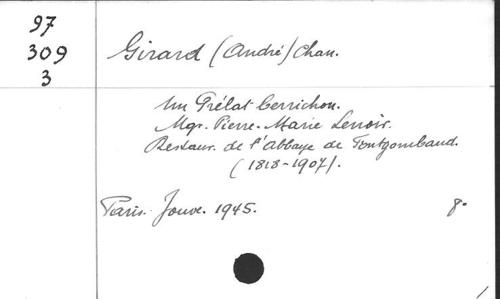 97
309
3
Girard (André) Chan.
Un Prélat berrichon.
Mgr. Pierre-Marie Lenoir.
Restaur. de l'Abbaye de Fontgombaud.
(1818-1907).
Paris. Jouve. 1945. 8°